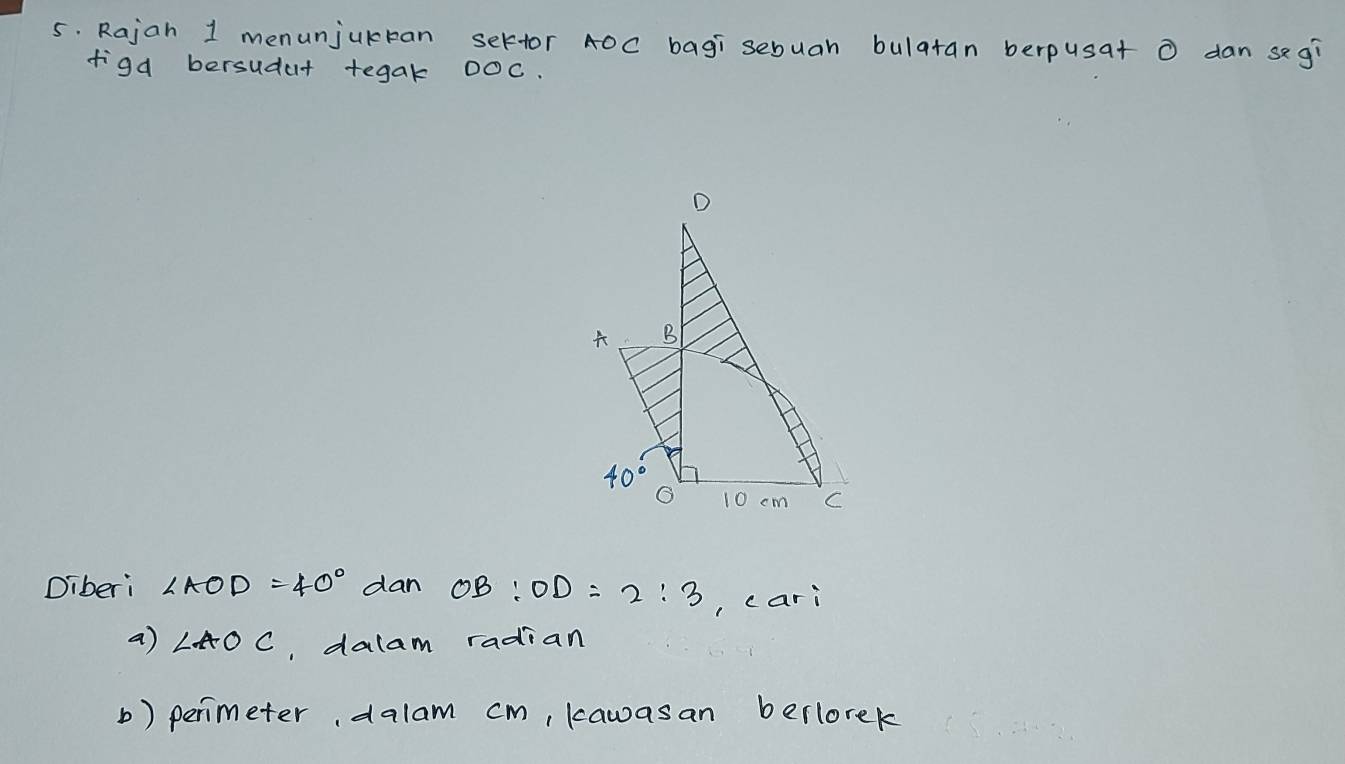 5. Rajah 1 menunjukkan sektor AOC bagi sebuah bulatan berpusat O dan segi
tiga bersudut tegak DOC.
D
A
B
40°
O
10 cm
C
Diberi ∠AOD = 40° dan OB : OD = 2 : 3, cari
a) ∠AOC, dalam radian
b) perimeter, dalam cm, kawasan berlorek